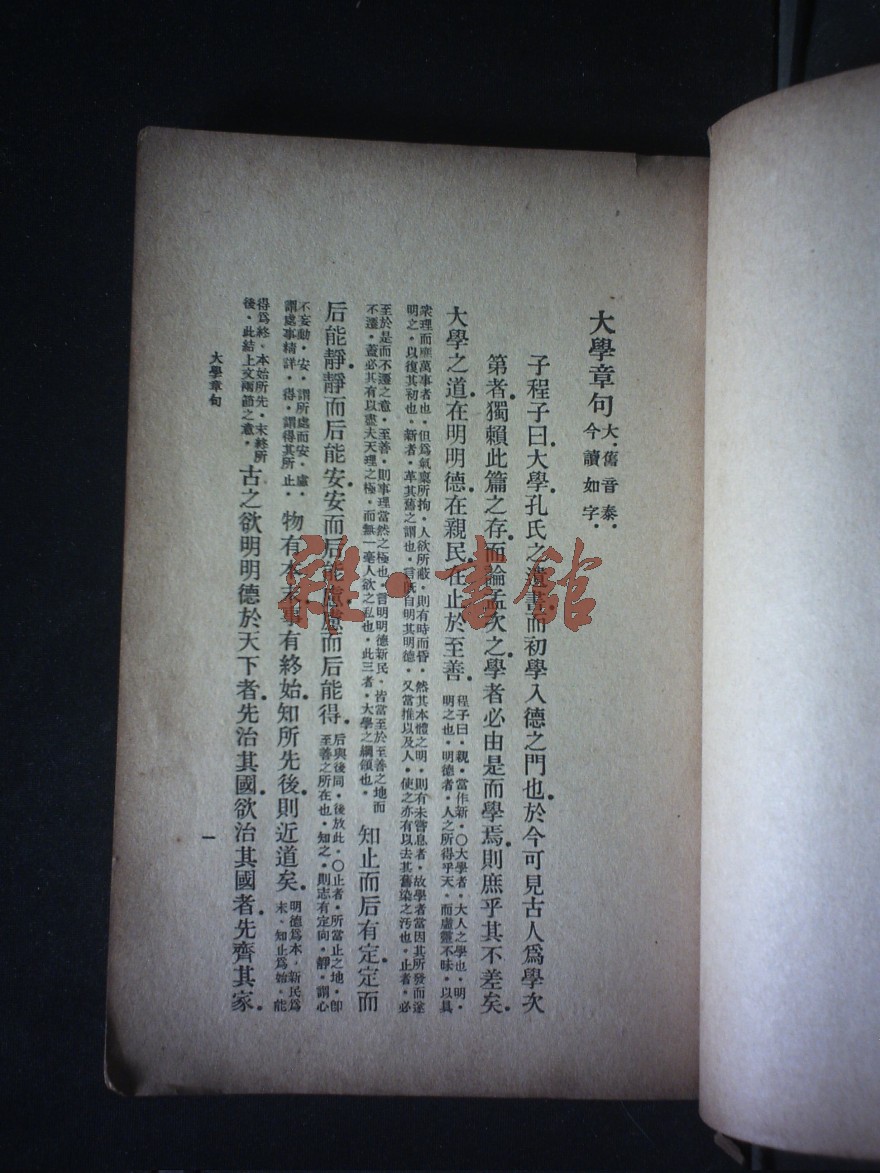 大學章句大、舊音泰、
今讀如字、
子程子曰大學孔氏之遺書而初學入德之門也於今可見古人爲學次
第者獨賴此篇之存而論孟次之學者必由是而學焉則庶乎其不差矣
大學之道在明明德在親民在止於至善程子曰、親、當作新、〇大學者、大人之學也、明、
明之也、明德者、人之所得乎天、而虛靈不昧、以具
衆理而應萬事者也、但爲氣稟所拘、人欲所蔽、則有時而昏、然其本體之明、則有未嘗息者、故學者當因其所發而遂
明之、以復其初也、新者、革其舊之謂也、言旣自明其明德、又當推以及人、使之亦有以去其舊染之汚也、止者、必
至於是而不遷之意、至善、則事理當然之極也、言明明德新民、皆當至於至善之地而
不遷、蓋必其有以盡夫天理之極、而無一毫人欲之私也、此三者、大學之綱領也、
知止而后有定定而
后能靜靜而后能安安而后能慮慮而后能得后與後同、後放此、〇止者、所當止之地、卽
至善之所在也、知之、則志有定向、靜、謂心
不妄動、安、謂所處而安、慮、
謂處事精詳、得、謂得其所止、
物有本末事有終始知所先後則近道矣明德爲本、新民爲
末、知止爲始、能
得爲終、本始所先、末終所
後、此結上文兩節之意、
古之欲明明德於天下者先治其國欲治其國者先齊其家
大學章句
一
雜·書館